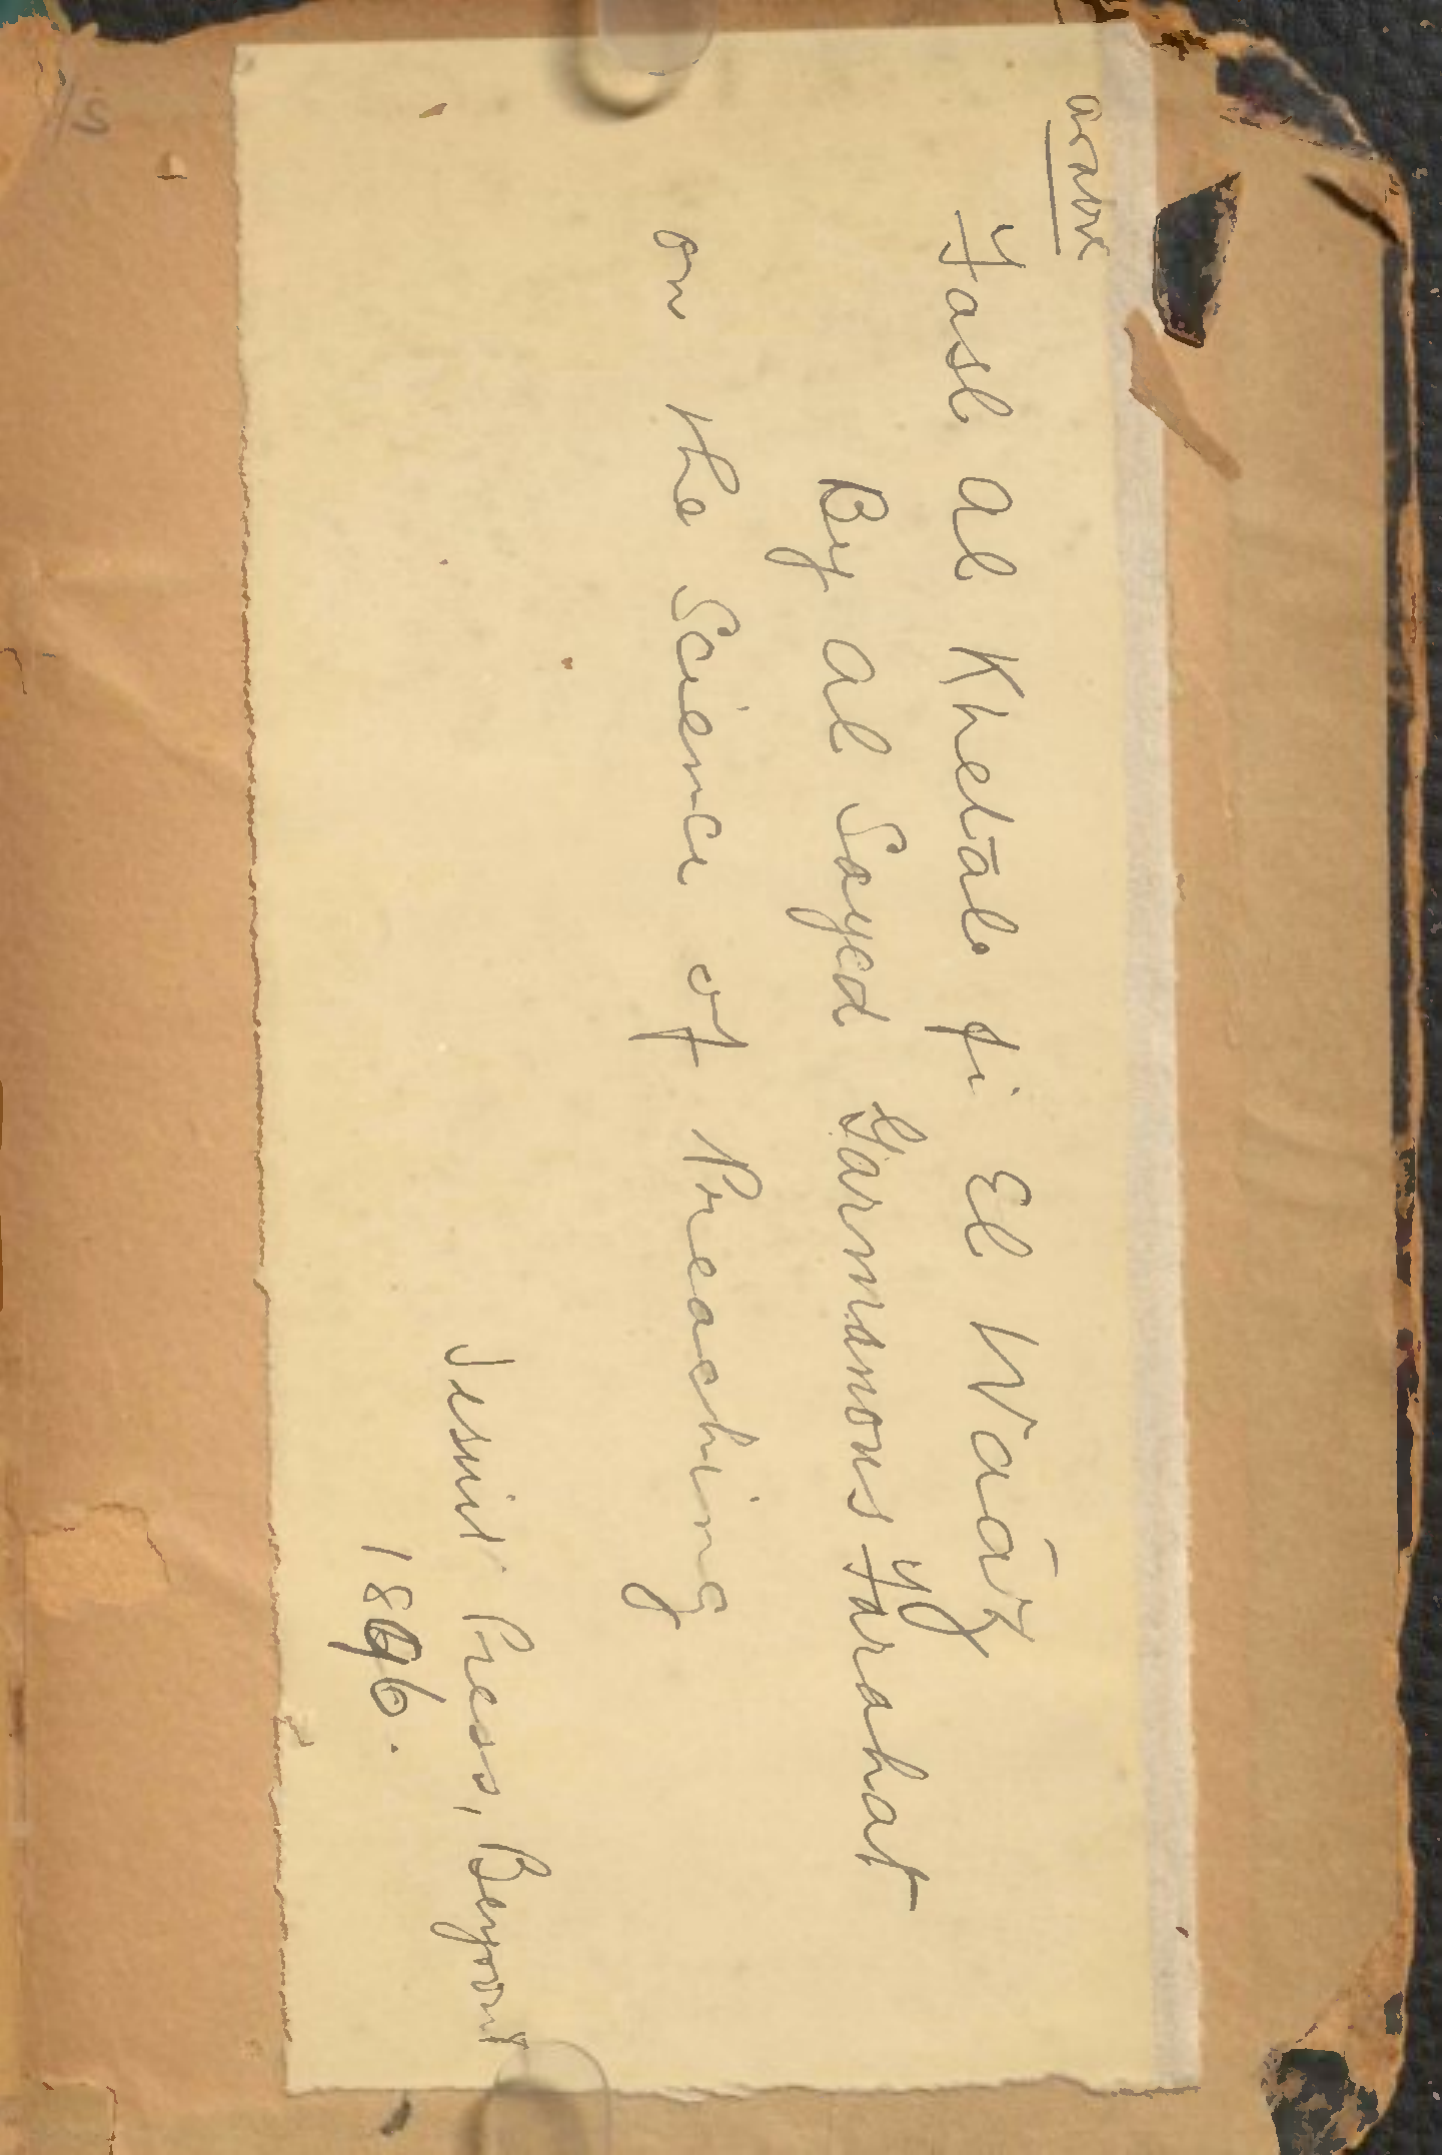 Arabic
Fasl al Khetab fi El Wāāz
By al Sayed Garmanous Farahat
on the Science of Preaching
Jesuit Press, Beyrout
1896.